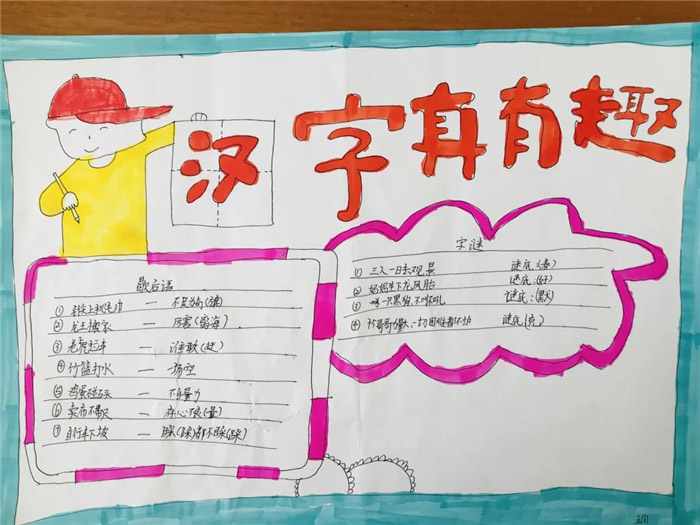 汉字真有趣
歇后语
① 针尖上 — 不足为
② 龙王搬家 — 厉害(离海)
③ 老虎拉车 — 谁敢(赶)
④ 竹篮打水 — 一场空
⑤ 鸡蛋碰石头 — 不自量力
⑥ 卖布不带尺 — 存心不良(量)
⑦ 自行车下坡 — 睬(踩)都不睬(踩)
字谜
① 三人一日去观景 谜底:(春)
② 妈妈生下龙凤胎 谜底:(好)
③ 一只黑狗,不叫不吼 谜底:(默)
④ 一切困难都不怕 谜底(克)